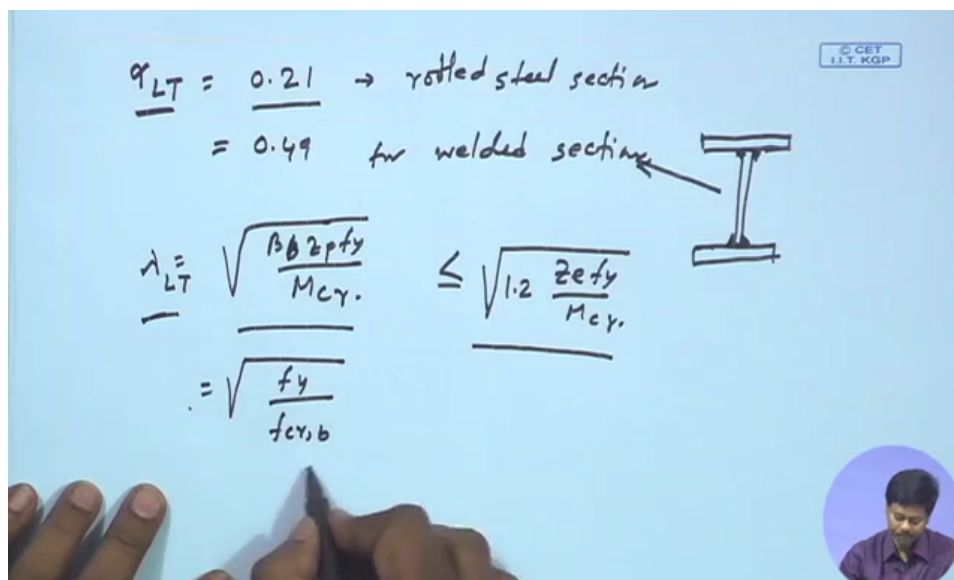 © CET
I.I.T. KGP
αLT = 0.21 → rolled steel section
= 0.49 for welded section
λLT = √(βb Zp fy / Mcr.) ≤ √(1.2 Ze fy / Mcr.)
= √(fy / fcr,b)